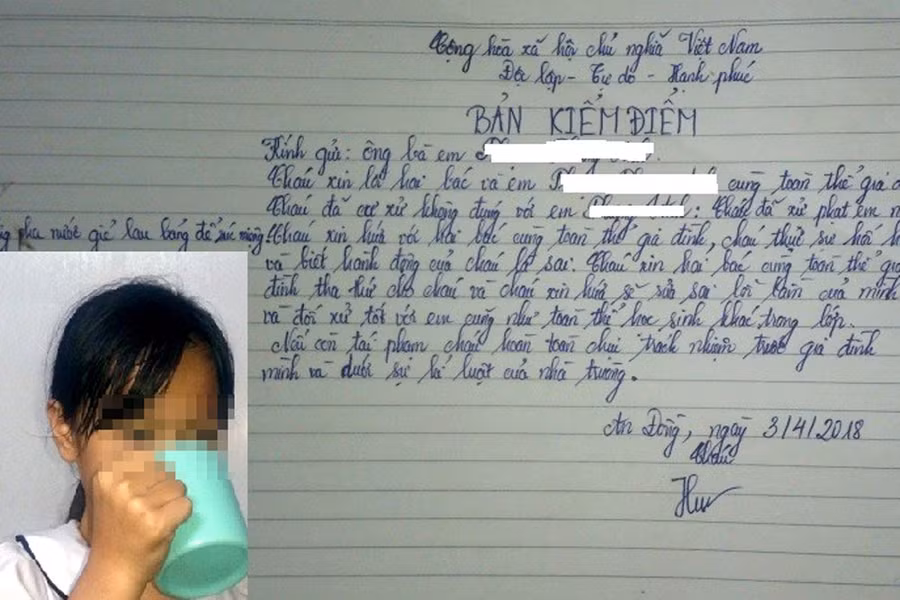 Cộng hòa xã hội chủ nghĩa Việt Nam
Độc lập - Tự do - Hạnh phúc
BẢN KIỂM ĐIỂM
Kính gửi: ông bà em
Cháu xin lỗi hai bác và em cùng toàn thể gia
Cháu đã cư xử không đựng với em : Cháu đã xử phạt em
pha nước giẻ lau bảng để súc miệng. Cháu xin hứa với hai bác cùng toàn thể gia đình, cháu thực sự hối
và biết hành động của cháu là sai. Cháu xin hai bác cùng toàn thể gia
đình tha thứ cho cháu và cháu xin hứa sẽ sửa sai lỗi lầm của mình
và đối xử tốt với em cũng như toàn thể học sinh khác trong lớp.
Nếu còn tái phạm cháu hoàn toàn chịu trách nhiệm trước gia đình
mình và dưới sự kỉ luật của nhà trường.
An Đồng, ngày 3/4/2018
Cháu